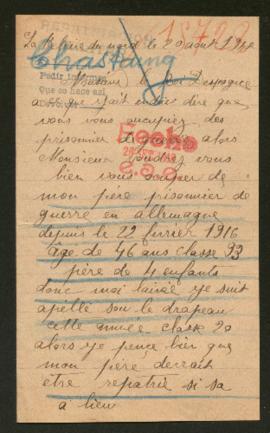 La du nord le 20 août 19
15722
Chastang
Pedir informes
Que se hace así
Monsieur le Roi Despagne
dire que
vous vous occupiez des
prisonnier de guerre alors
Monsieur voudriez vous
bien vous occuper de
mon père prisonnier de
guerre en allemagne
depuis le 22 février 1916
âge de 46 ans classe 93
père de 4 enfants
donc moi lainé je suit
apellé sou le drapeau
cette année classe 20
alors je pence bien que
mon père devrait
être repatrié si sa
a lieu